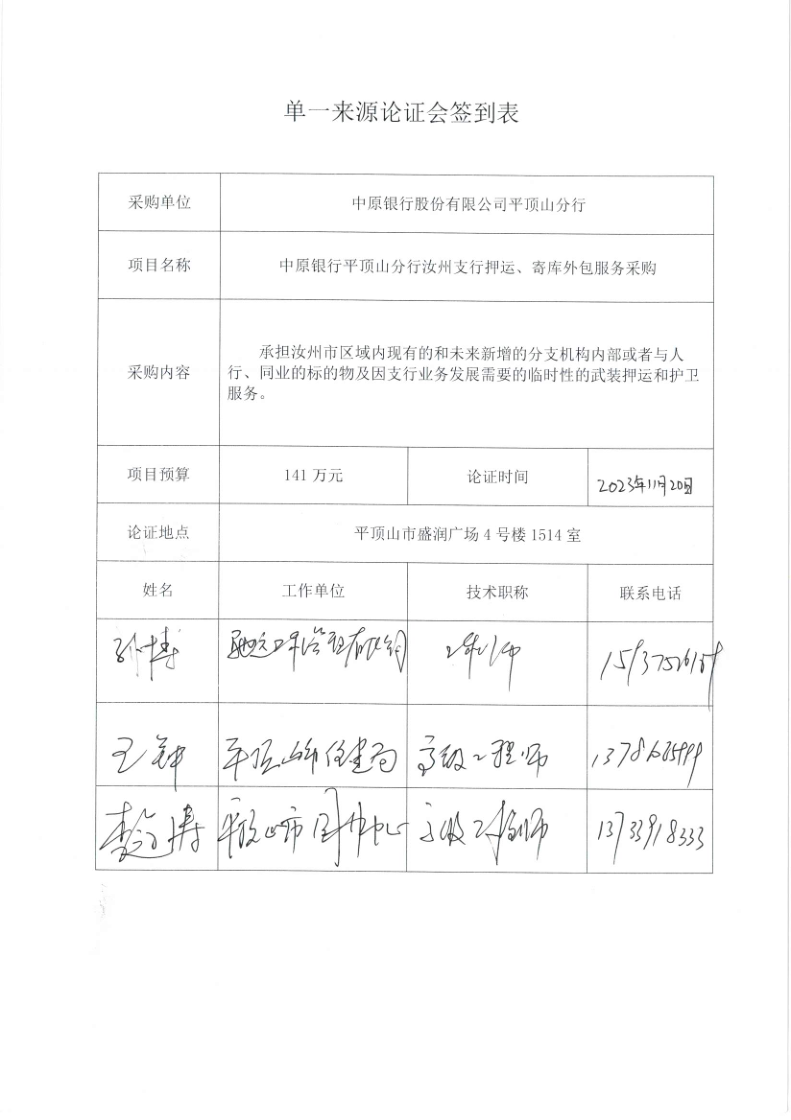 单一来源论证会签到表
采购单位 中原银行股份有限公司平顶山分行
项目名称 中原银行平顶山分行汝州支行押运、寄库外包服务采购
采购内容 承担汝州市区域内现有的和未来新增的分支机构内部或者与人
行、同业的标的物及因支行业务发展需要的临时性的武装押运和护卫
服务。
项目预算 141 万元 论证时间 2023年11月20日
论证地点 平顶山市盛润广场 4 号楼 1514 室
姓名 工作单位 技术职称 联系电话
孙博 工程管理有限公司 工程师
王钟 平顶山市住建局 高级工程师
李 涛 平顶山市 中心 高级工程师 13733918333